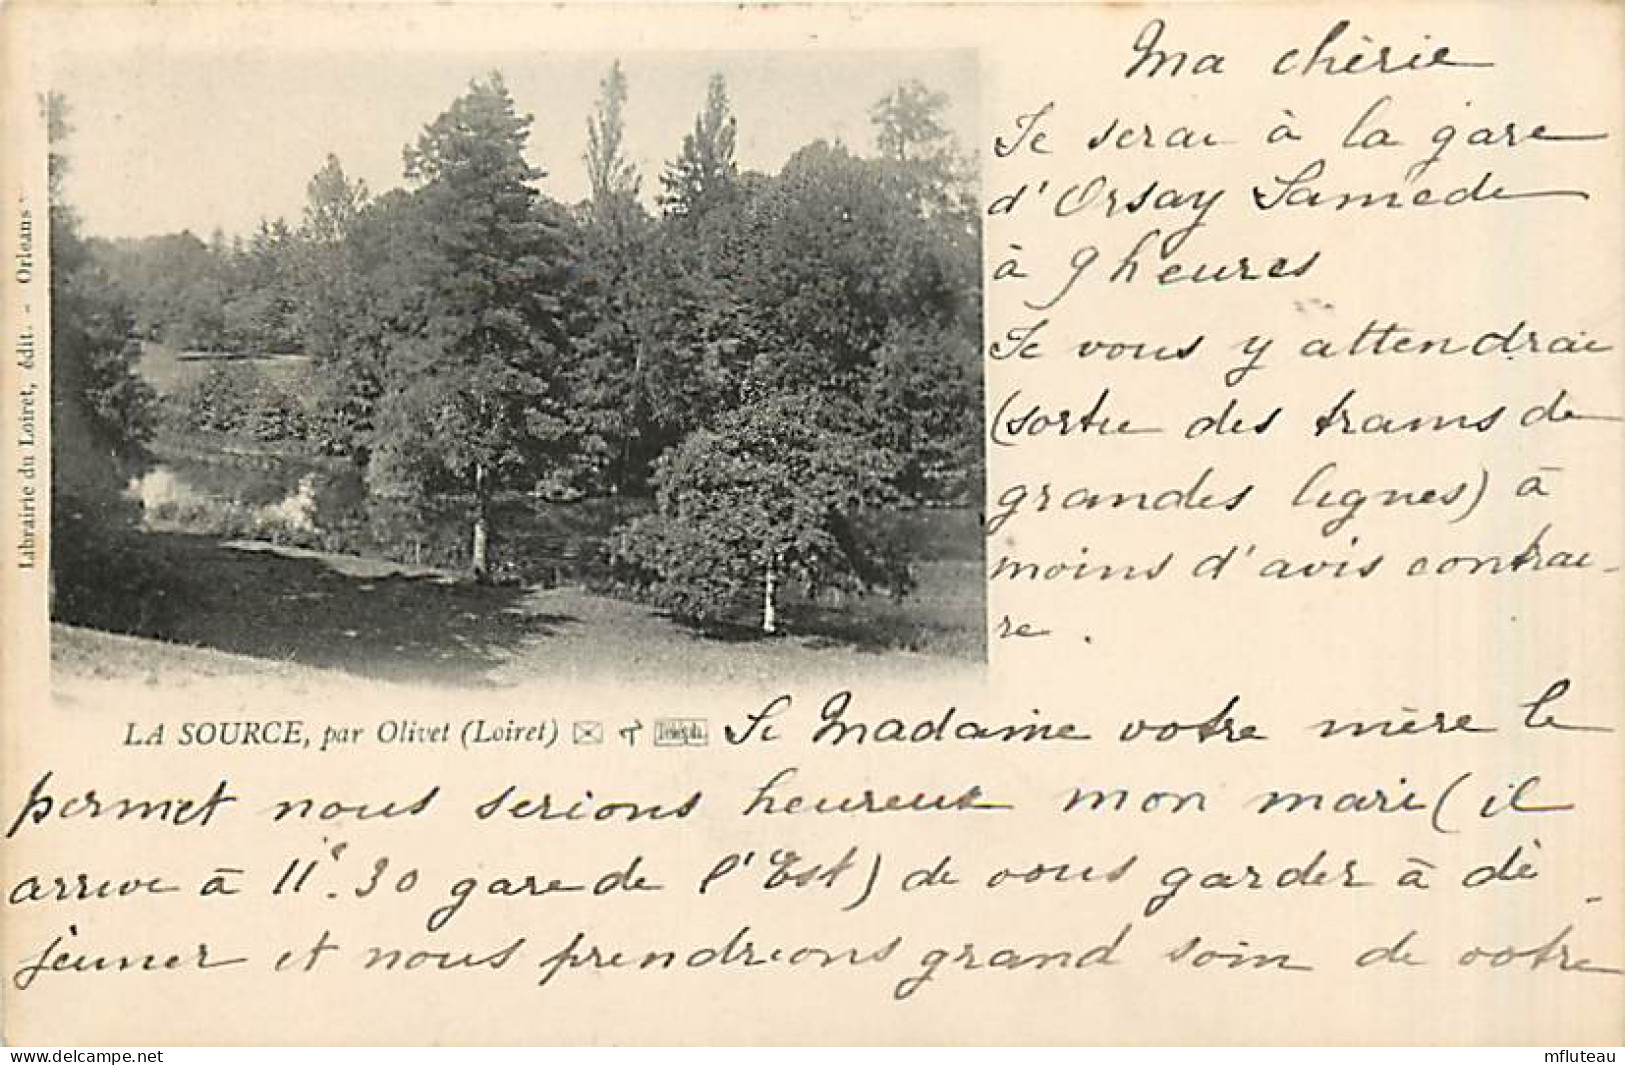 Ma chérie
Je serai à la gare
d'Orsay Samedi
à 9 heures
Je vous y attendrai
(sortie des trams de
grandes lignes) à
moins d'avis contrai-
re.
Librairie du Loiret, édit. - Orléans
LA SOURCE, par Olivet (Loiret) Téléph.
Si Madame votre mère le
permet nous serions heureux mon mari (il
arrive à 11h.30 gare de l'Est) de vous garder à dé
-
jeuner et nous prendrions grand soin de votre
www.delcampe.net
mfluteau